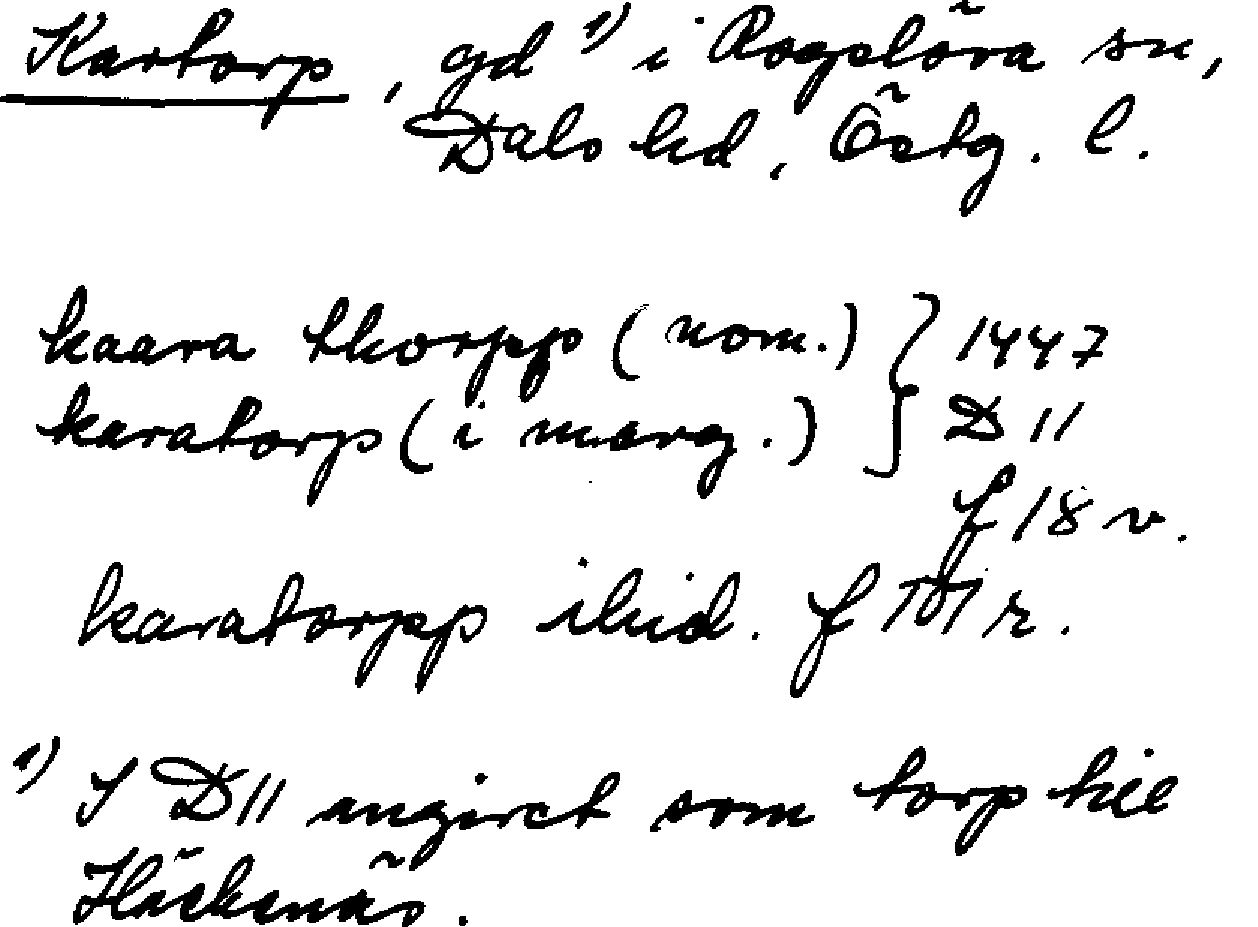 Kartorp, gd 1) i Rogslösa sn,
Dals hd, Östg. l.
kaara thorpp (nom.) } 1447
karatorp (i marg.) } D 11
f 18 v.
karatorpp ibid. f 101 r.
1) I D11 angivet som torp till
Häcksnäs.